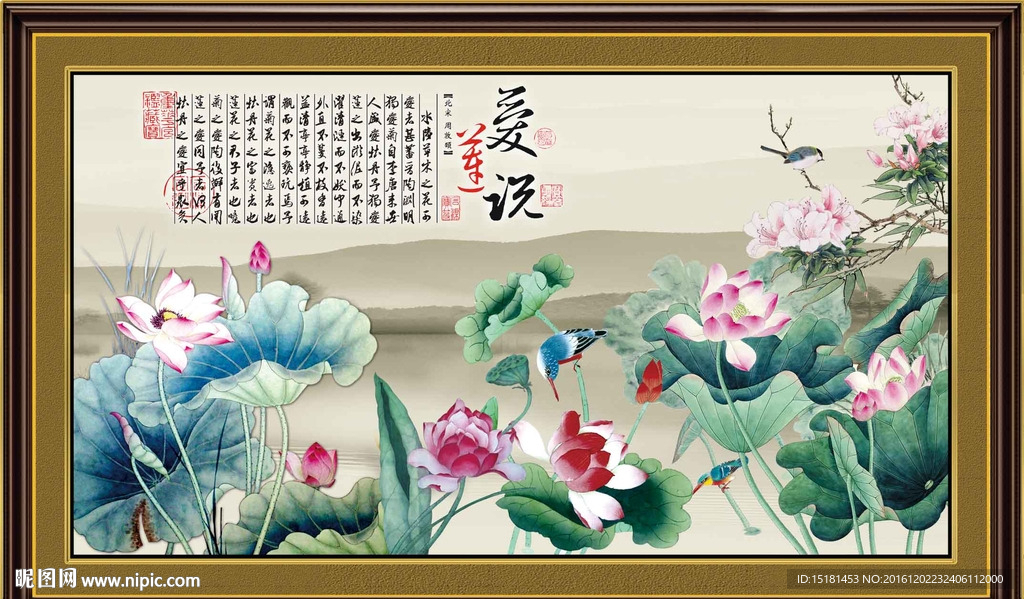 愛蓮说
【北宋 周敦頤】
水陸草木之花可
愛者甚蕃晉陶淵明
獨愛菊自李唐来世
人盛愛牡丹予獨愛
蓮之出淤泥而不染
濯清漣而不妖中通
外直不蔓不枝香遠
益清亭亭静植可遠
觀而不可褻玩焉予
謂菊花之隱逸者也
牡丹花之富貴者也
蓮花之君子者也噫
菊之愛陶後鮮有聞
蓮之愛同予者何人
牡丹之愛宜乎衆矣
昵图网 www.nipic.com
ID:15181453 NO:20161202232406112000